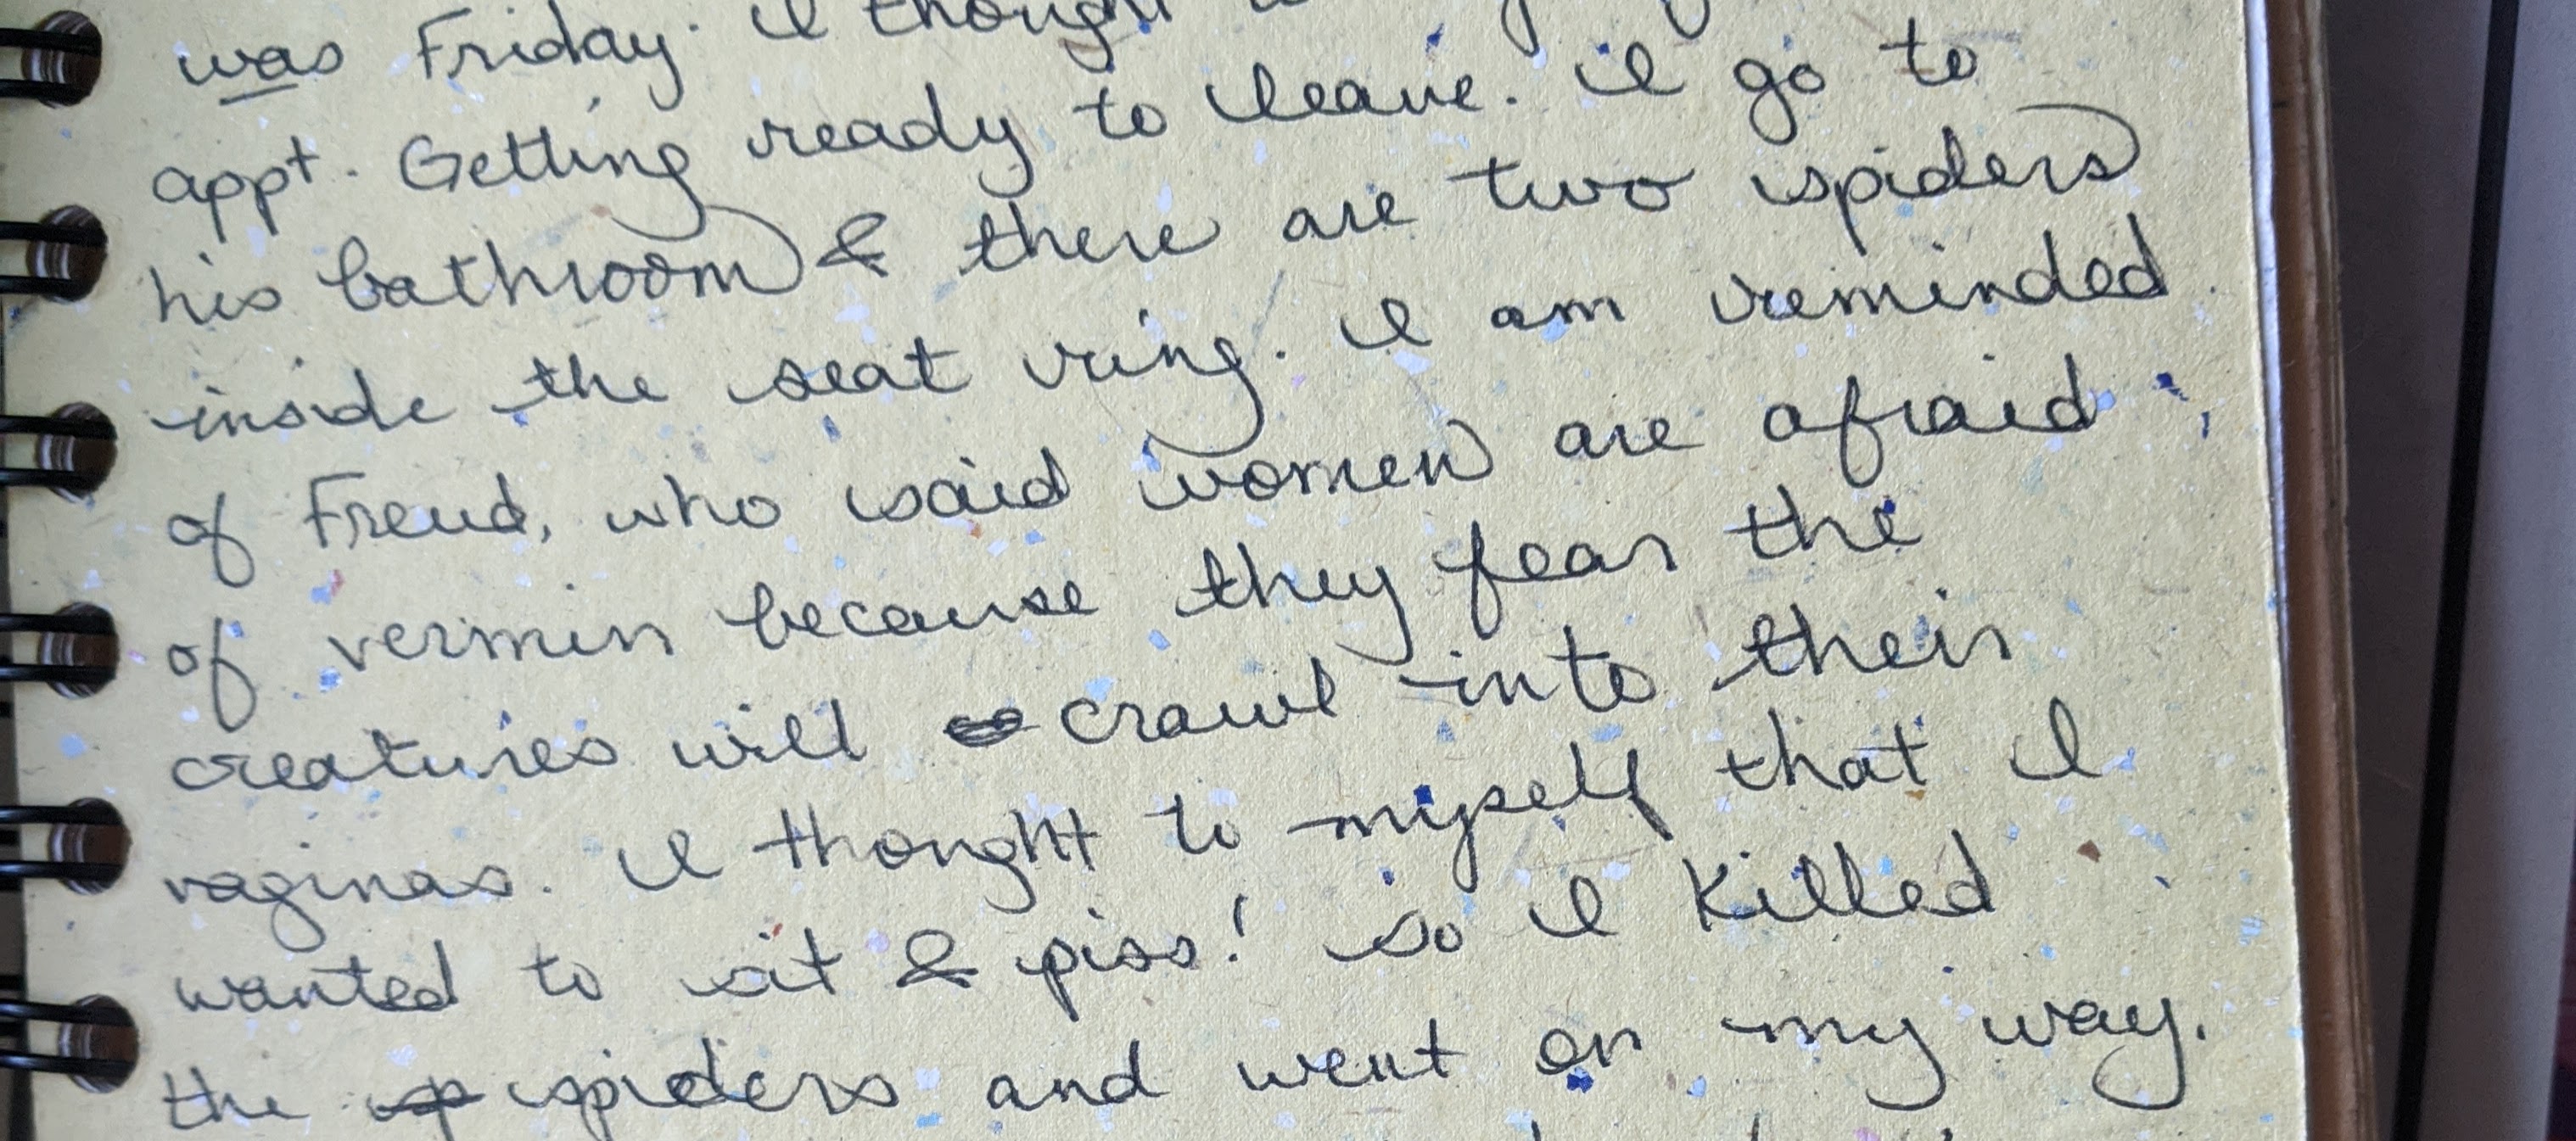 was Friday. I thought
appt. Getting ready to leave. I go to
his bathroom & there are two spiders
inside the seat ring. I am reminded
of Freud, who said women are afraid
of vermin because they fear the
creatures will crawl into their
vaginas. I thought to myself that I
wanted to sit & piss! So I killed
the spiders and went on my way.